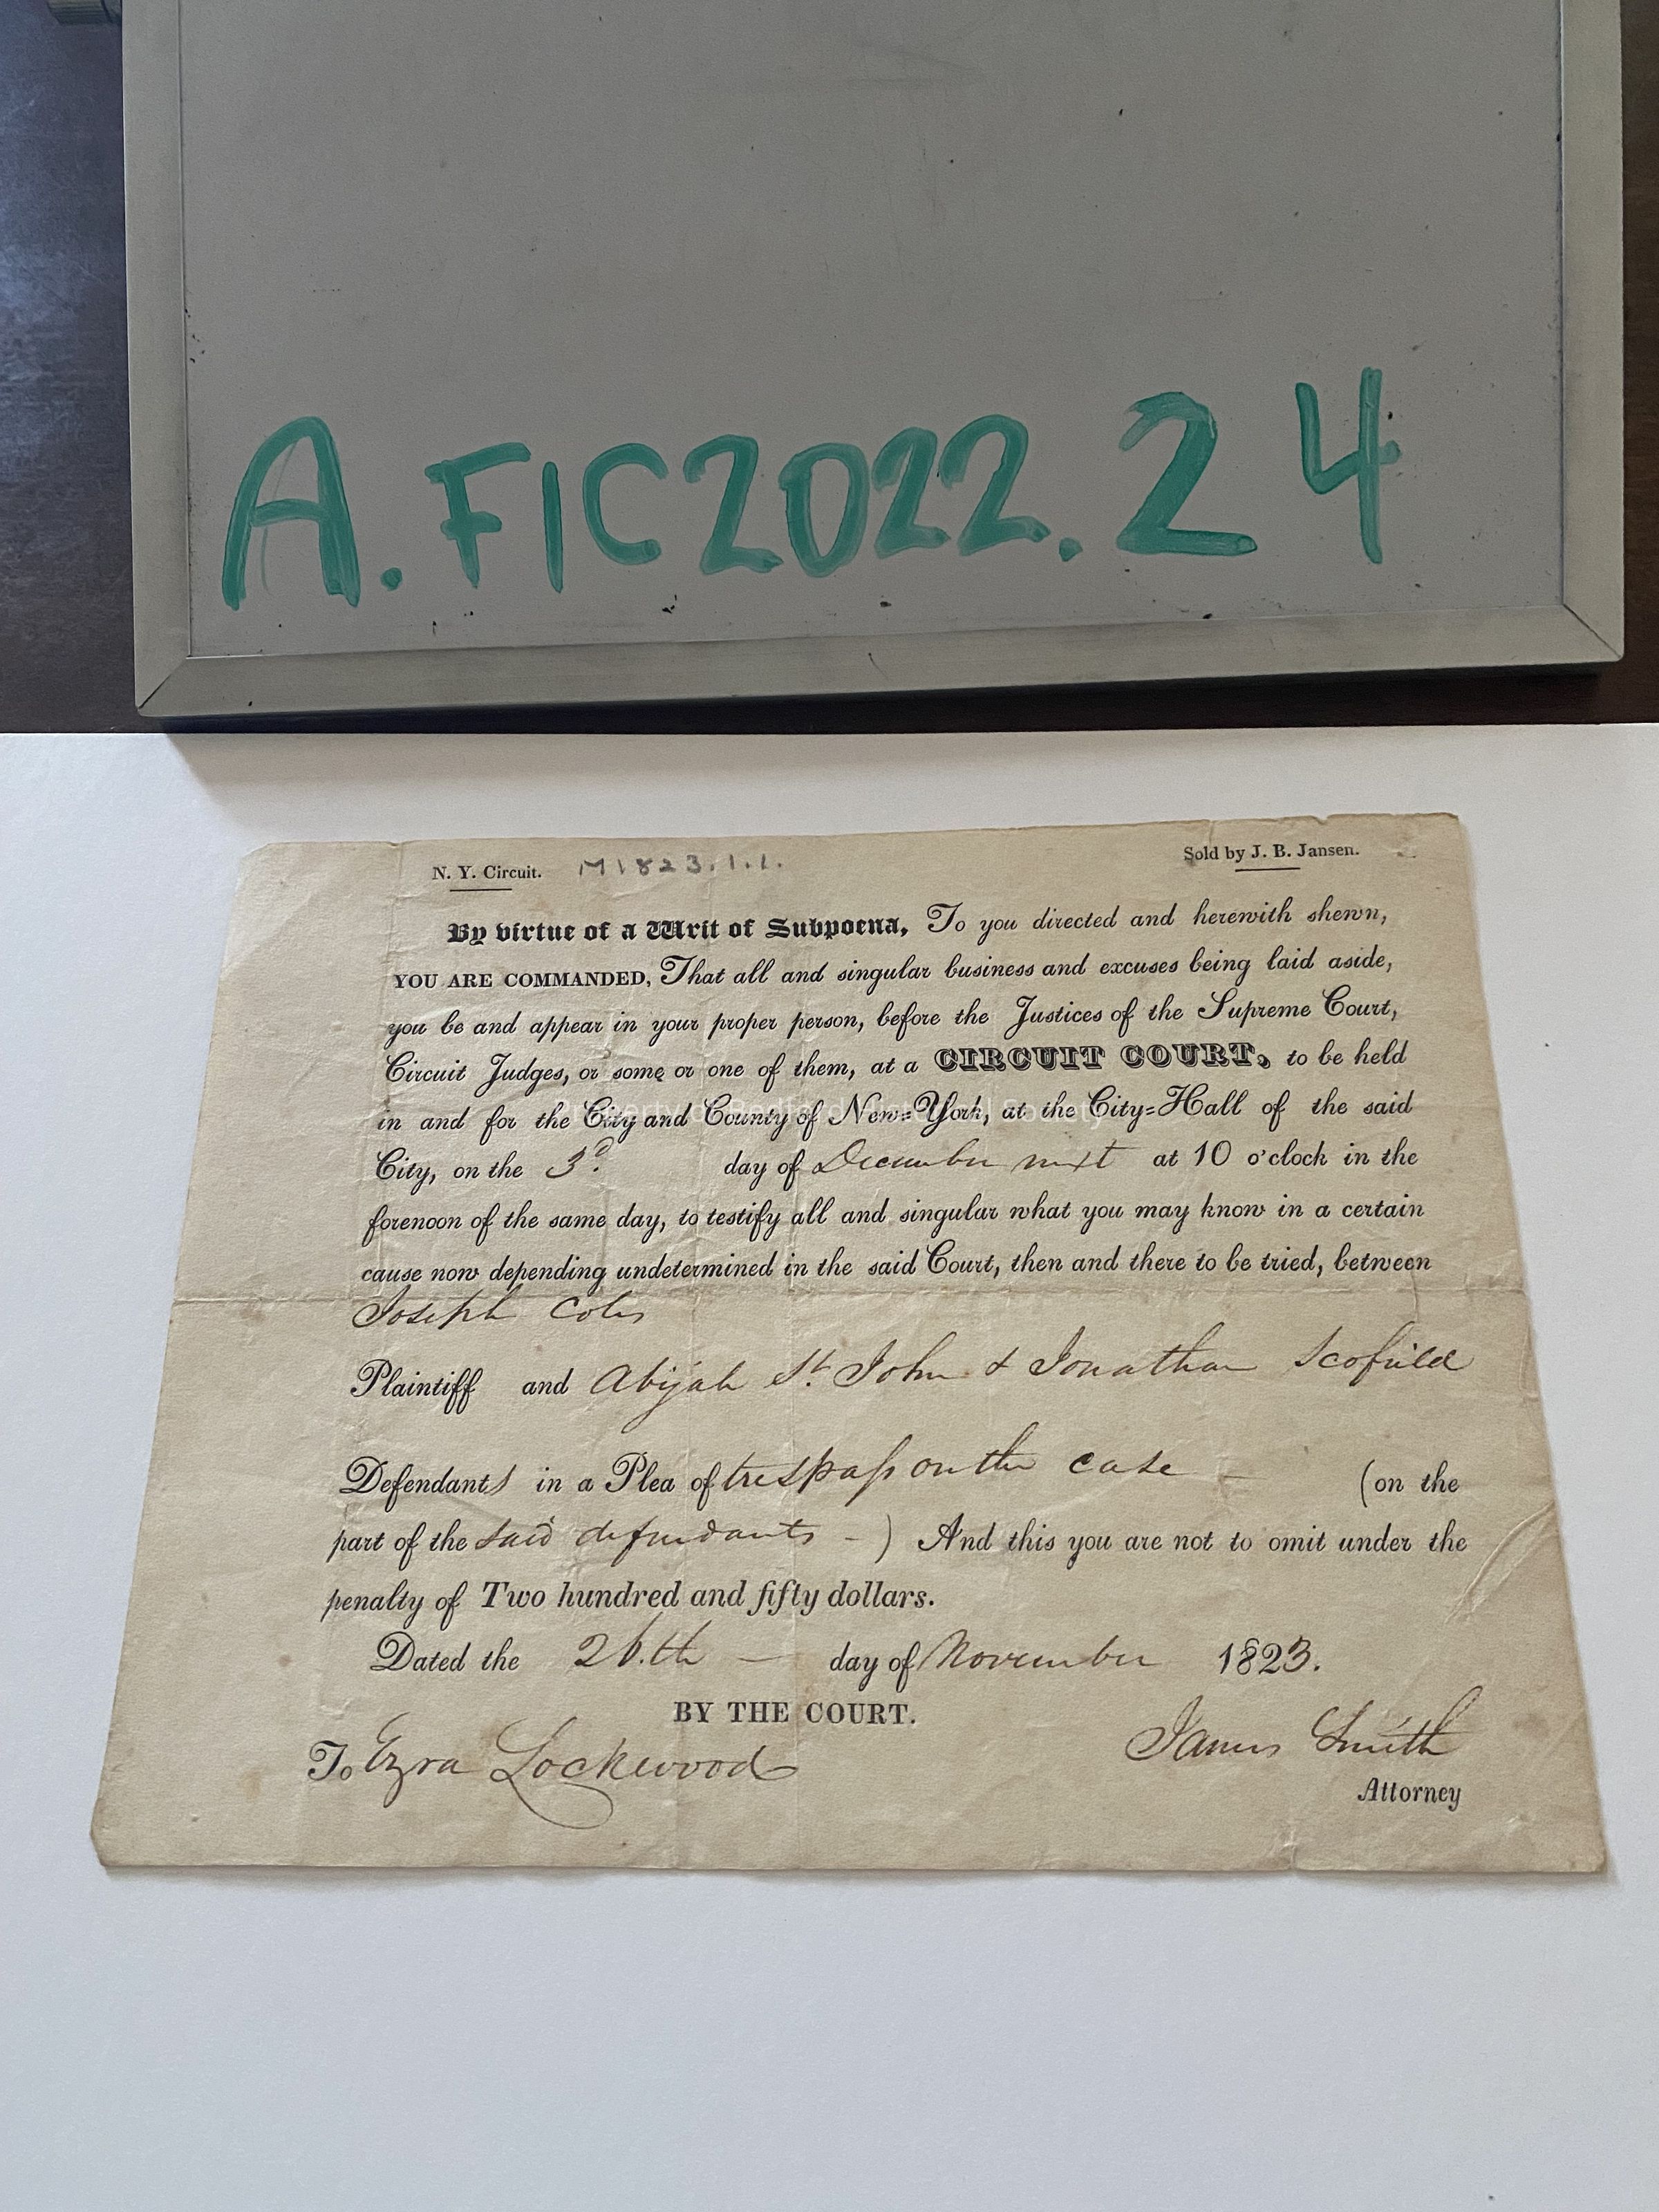 A.FIC2022.24
N. Y. Circuit. M1823.1.1. Sold by J. B. Jansen.
By virtue of a Writ of Subpoena, To you directed and herewith shewn,
YOU ARE COMMANDED, That all and singular business and excuses being laid aside,
you be and appear in your proper person, before the Justices of the Supreme Court,
Circuit Judges, or some or one of them, at a CIRCUIT COURT, to be held
in and for the City and County of New=York, at the City=Hall of the said
Property of Bedford Historical Society
City, on the 3d. day of December next at 10 o'clock in the
forenoon of the same day, to testify all and singular what you may know in a certain
cause now depending undetermined in the said Court, then and there to be tried, between
Joseph Coles
Plaintiff and Abijah St. John & Jonathan Scofield
Defendants in a Plea of trespass on the case - (on the
part of the said defendants -) And this you are not to omit under the
penalty of Two hundred and fifty dollars.
Dated the 26.th - day of November 1823.
BY THE COURT.
To Ezra Lockwood James Smith
Attorney